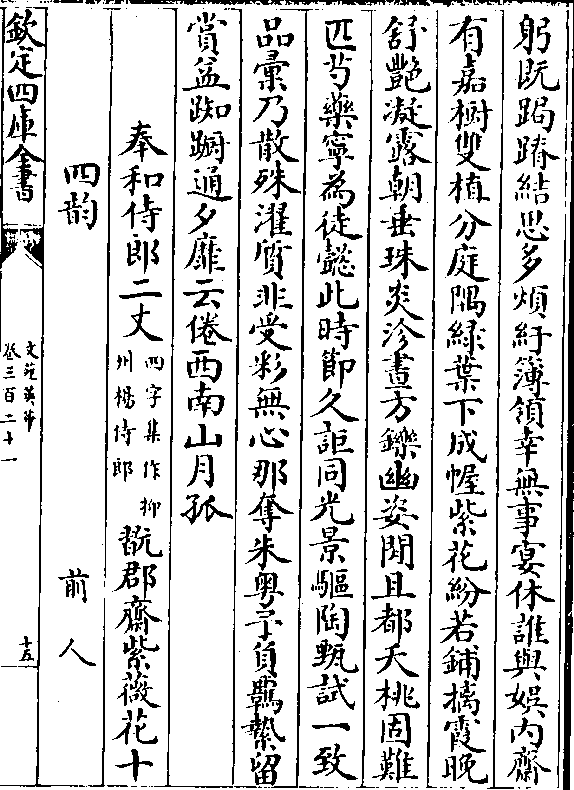 躬既跼蹐結思多煩紆簿領幸無事宴休誰與娯内齋
有嘉樹雙植分庭隅緑葉下成幄紫花紛若鋪摛霞晩
舒艷凝露朝垂珠炎沴晝方鑠幽姿閒且都夭桃固難
匹芍藥寧為徒懿此時節久詎同光景驅陶甄試一致
品彚乃散殊濯質非受彩無心那奪朱粤予負羈縶留
賞益踟蹰通夕靡云倦西南山月孤
奉和侍郎二丈四字集作柳州楊侍郎翫郡齋紫薇花十
四韵 前人
欽定四庫全書
文苑英華
卷三百二十一
十五